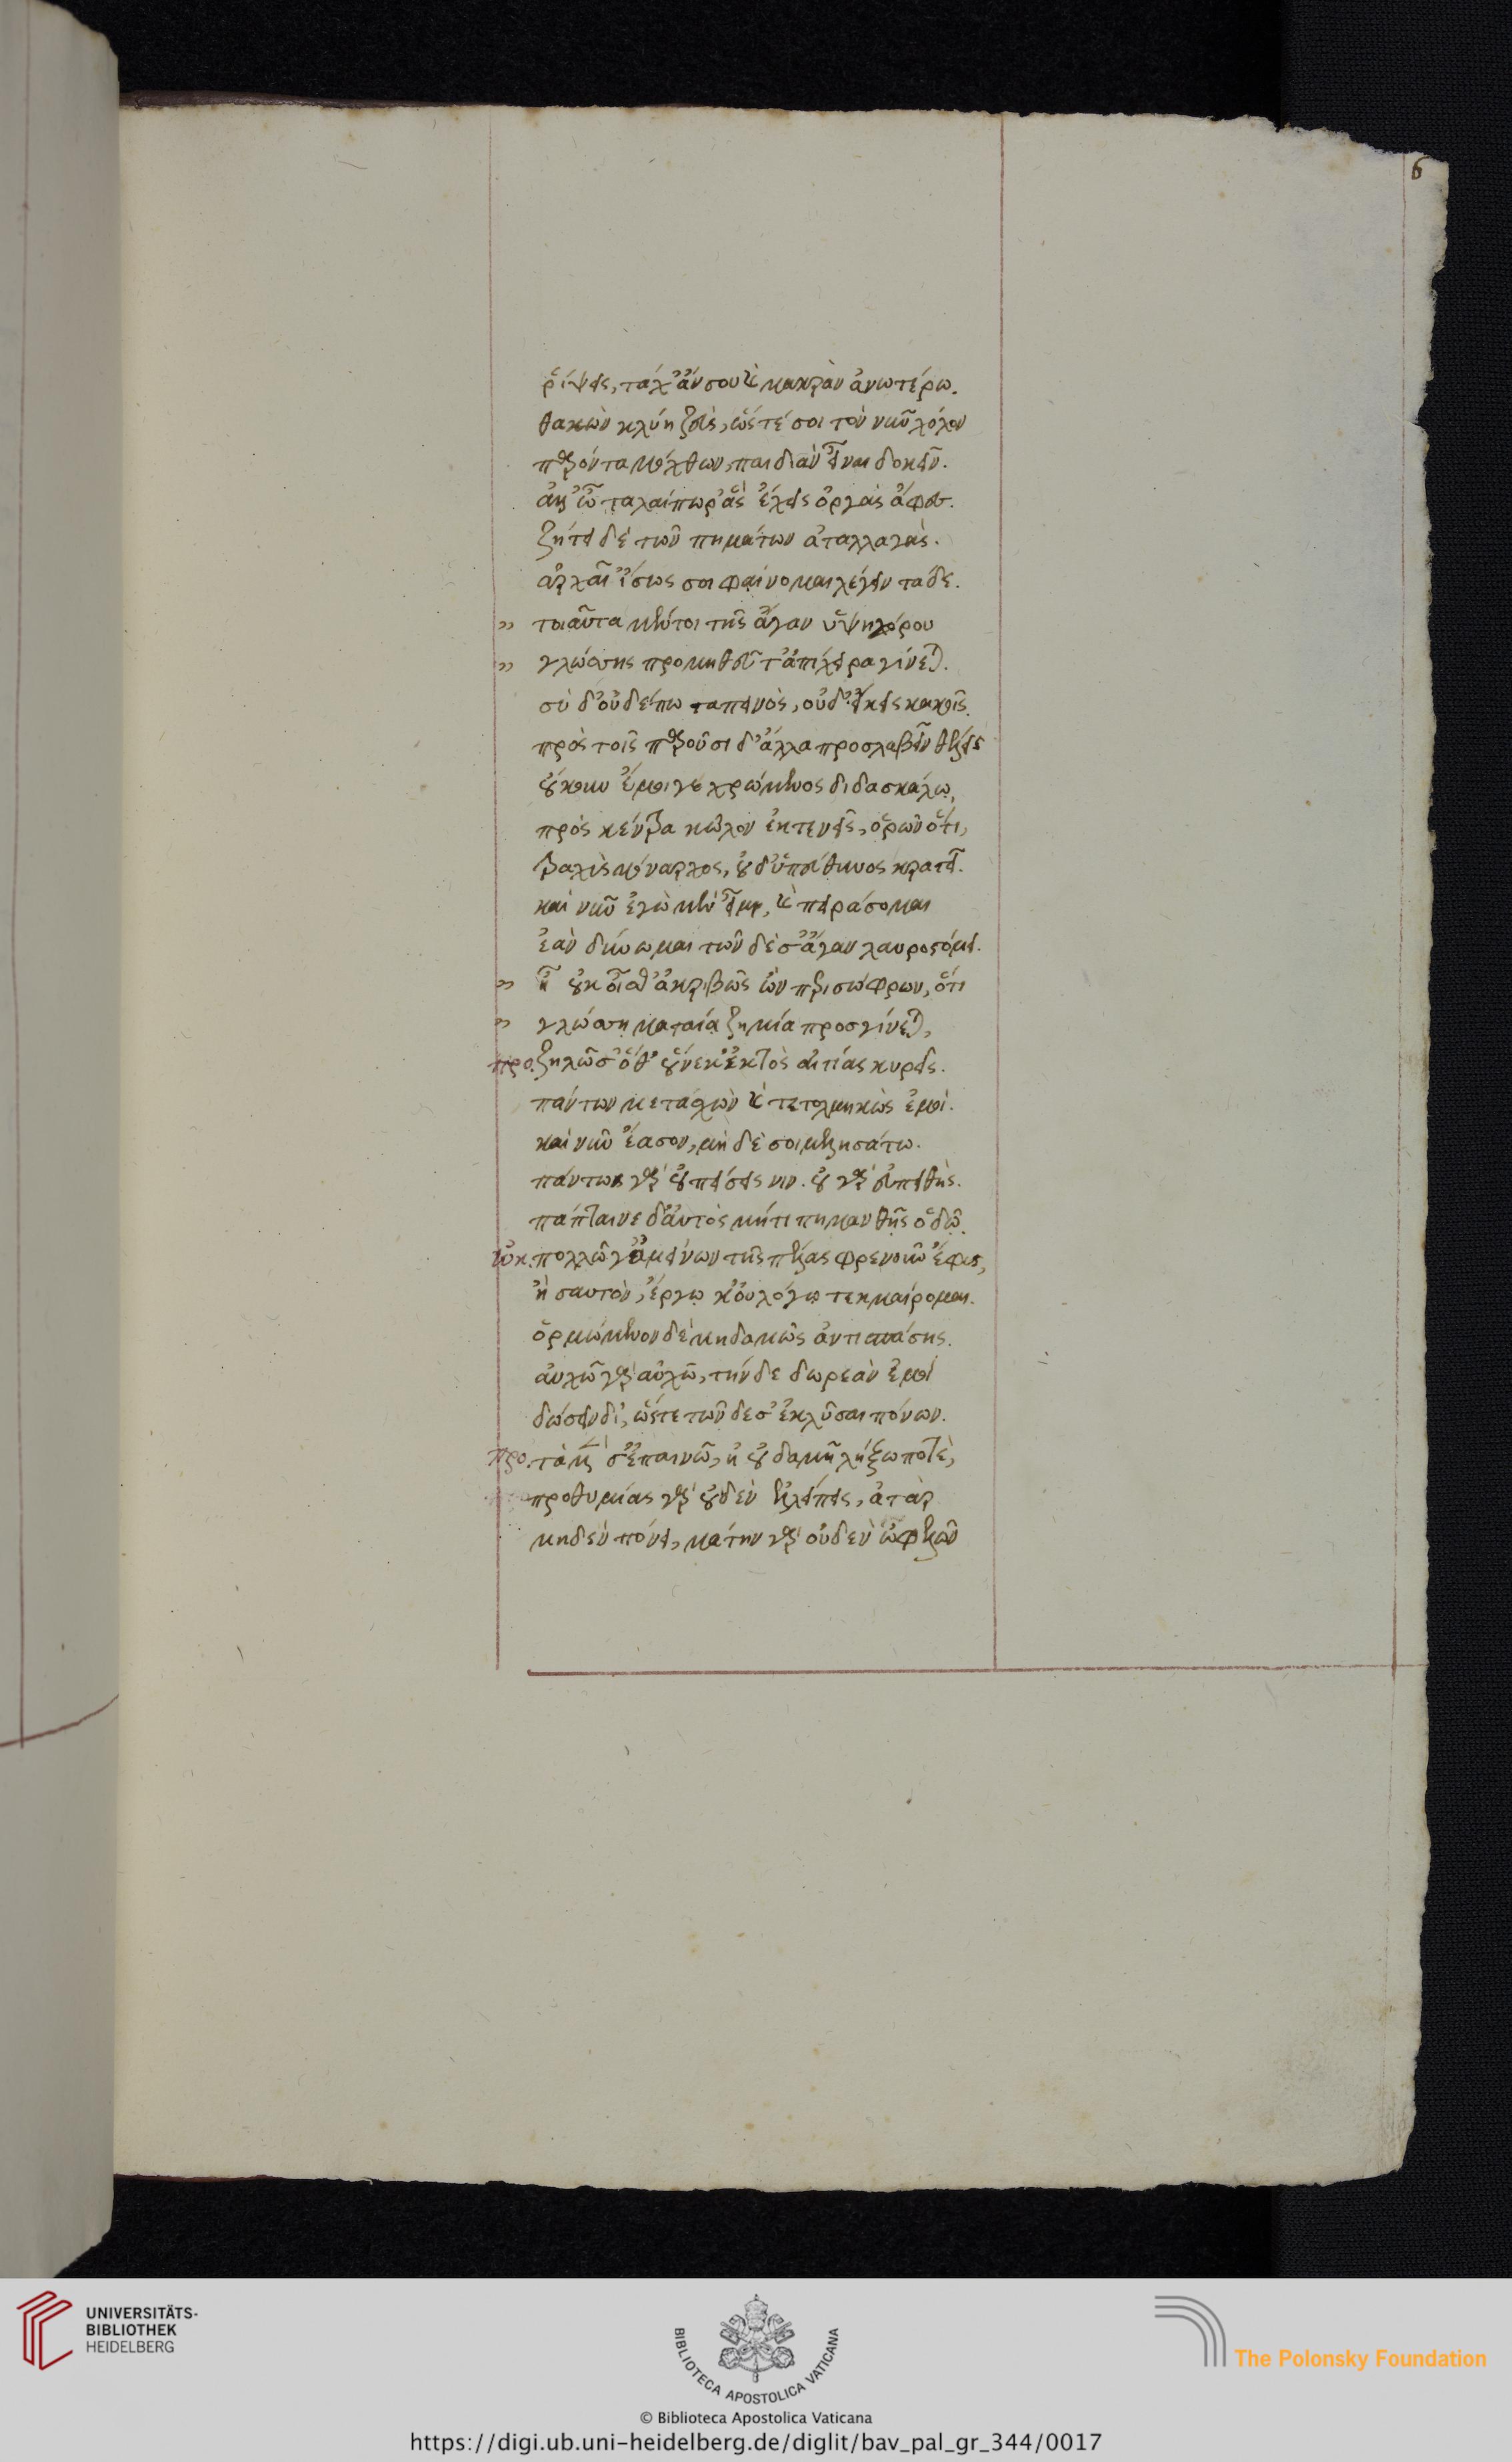 ῥίψεις, τάχ' ἄν σου καὶ μακρὰν ἀνωτέρω.
θακῶν κλύῃ ζεὺς, ὥστέ σοι τὸν νῦν χόλον
παρόντα μόχθων, παιδιὰν εἶναι δοκεῖν.
ἀλλ' ὦ ταλαίπωρ' ἃς ἔχεις ὀργὰς ἄφες.
ζήτει δὲ τῶν πημάτων ἀπαλλαγάς.
ἀρχαῖ' ἴσως σοι φαίνομαι λέγειν τάδε.
" τοιαῦτα μέντοι τῆς ἄγαν ὑψηγόρου
" γλώσσης προμηθεῦ τἀπίχειρα γίνεται.
σὺ δ' οὐδέπω ταπεινὸς, οὐδ' εἴκεις κακοῖς.
πρὸς τοῖς παροῦσι δ' ἄλλα προσλαβεῖν θέλεις
οὔκουν ἔμοιγε χρώμενος διδασκάλῳ,
πρὸς κέντρα κῶλον ἐκτενεῖς, ὁρῶν ὅτι,
τραχὺς μόναρχος, οὐδ' ὑπεύθυνος κρατεῖ.
καὶ νῦν ἐγὼ μὲν εἶμι, καὶ πειράσομαι
ἐὰν δύνωμαι τῶν δέ σ' ἄγαν λαυροστόμει.
" ἢ οὐκ οἶσθ' ἀκριβῶς ὢν περισσόφρων, ὅτι
" γλώσσῃ ματαίᾳ ζημία προσγίνεται,
προ. ζηλῶ σ' ὅθ' οὕνεκ' ἐκτὸς αἰτίας κυρεῖς.
πάντων μετασχὼν καὶ τετολμηκὼς ἐμοί.
καὶ νῦν ἔασον, μὴ δέ σοι μελησάτω.
πάντως γὰρ οὐ πείσεις νιν. οὐ γὰρ εὐπειθής.
πάπταινε δ' αὐτὸς μήτι πημανθῇς ὁδῷ.
ὠκ. πολλῷ γ' ἀμείνων τῆς πέλας φρενοῦν ἔφυς,
ἢ σαυτὸν, ἔργῳ κ' οὐ λόγῳ τεκμαίρομαι.
ὁρμώμενον δὲ μηδαμῶς ἀντισπάσῃς.
αὐχῶ γὰρ αὐχῶ, τήνδε δωρεὰν ἐμοὶ
δώσειν δί', ὥστε τῶν δέ σ' ἐκλῦσαι πόνων.
προ. τὰ μέν σ' ἐπαινῶ, κ' οὐδαμῆ λήξω ποτὲ,
προθυμίας γὰρ οὐδὲν ἐλλείπεις, ἀτὰρ
μηδὲν πόνει, μάτην γὰρ οὐδὲν ὠφελῶν
6
UNIVERSITÄTS-
BIBLIOTHEK
HEIDELBERG
BIBLIOTECA APOSTOLICA VATICANA
The Polonsky Foundation
© Biblioteca Apostolica Vaticana
https://digi.ub.uni-heidelberg.de/diglit/bav_pal_gr_344/0017